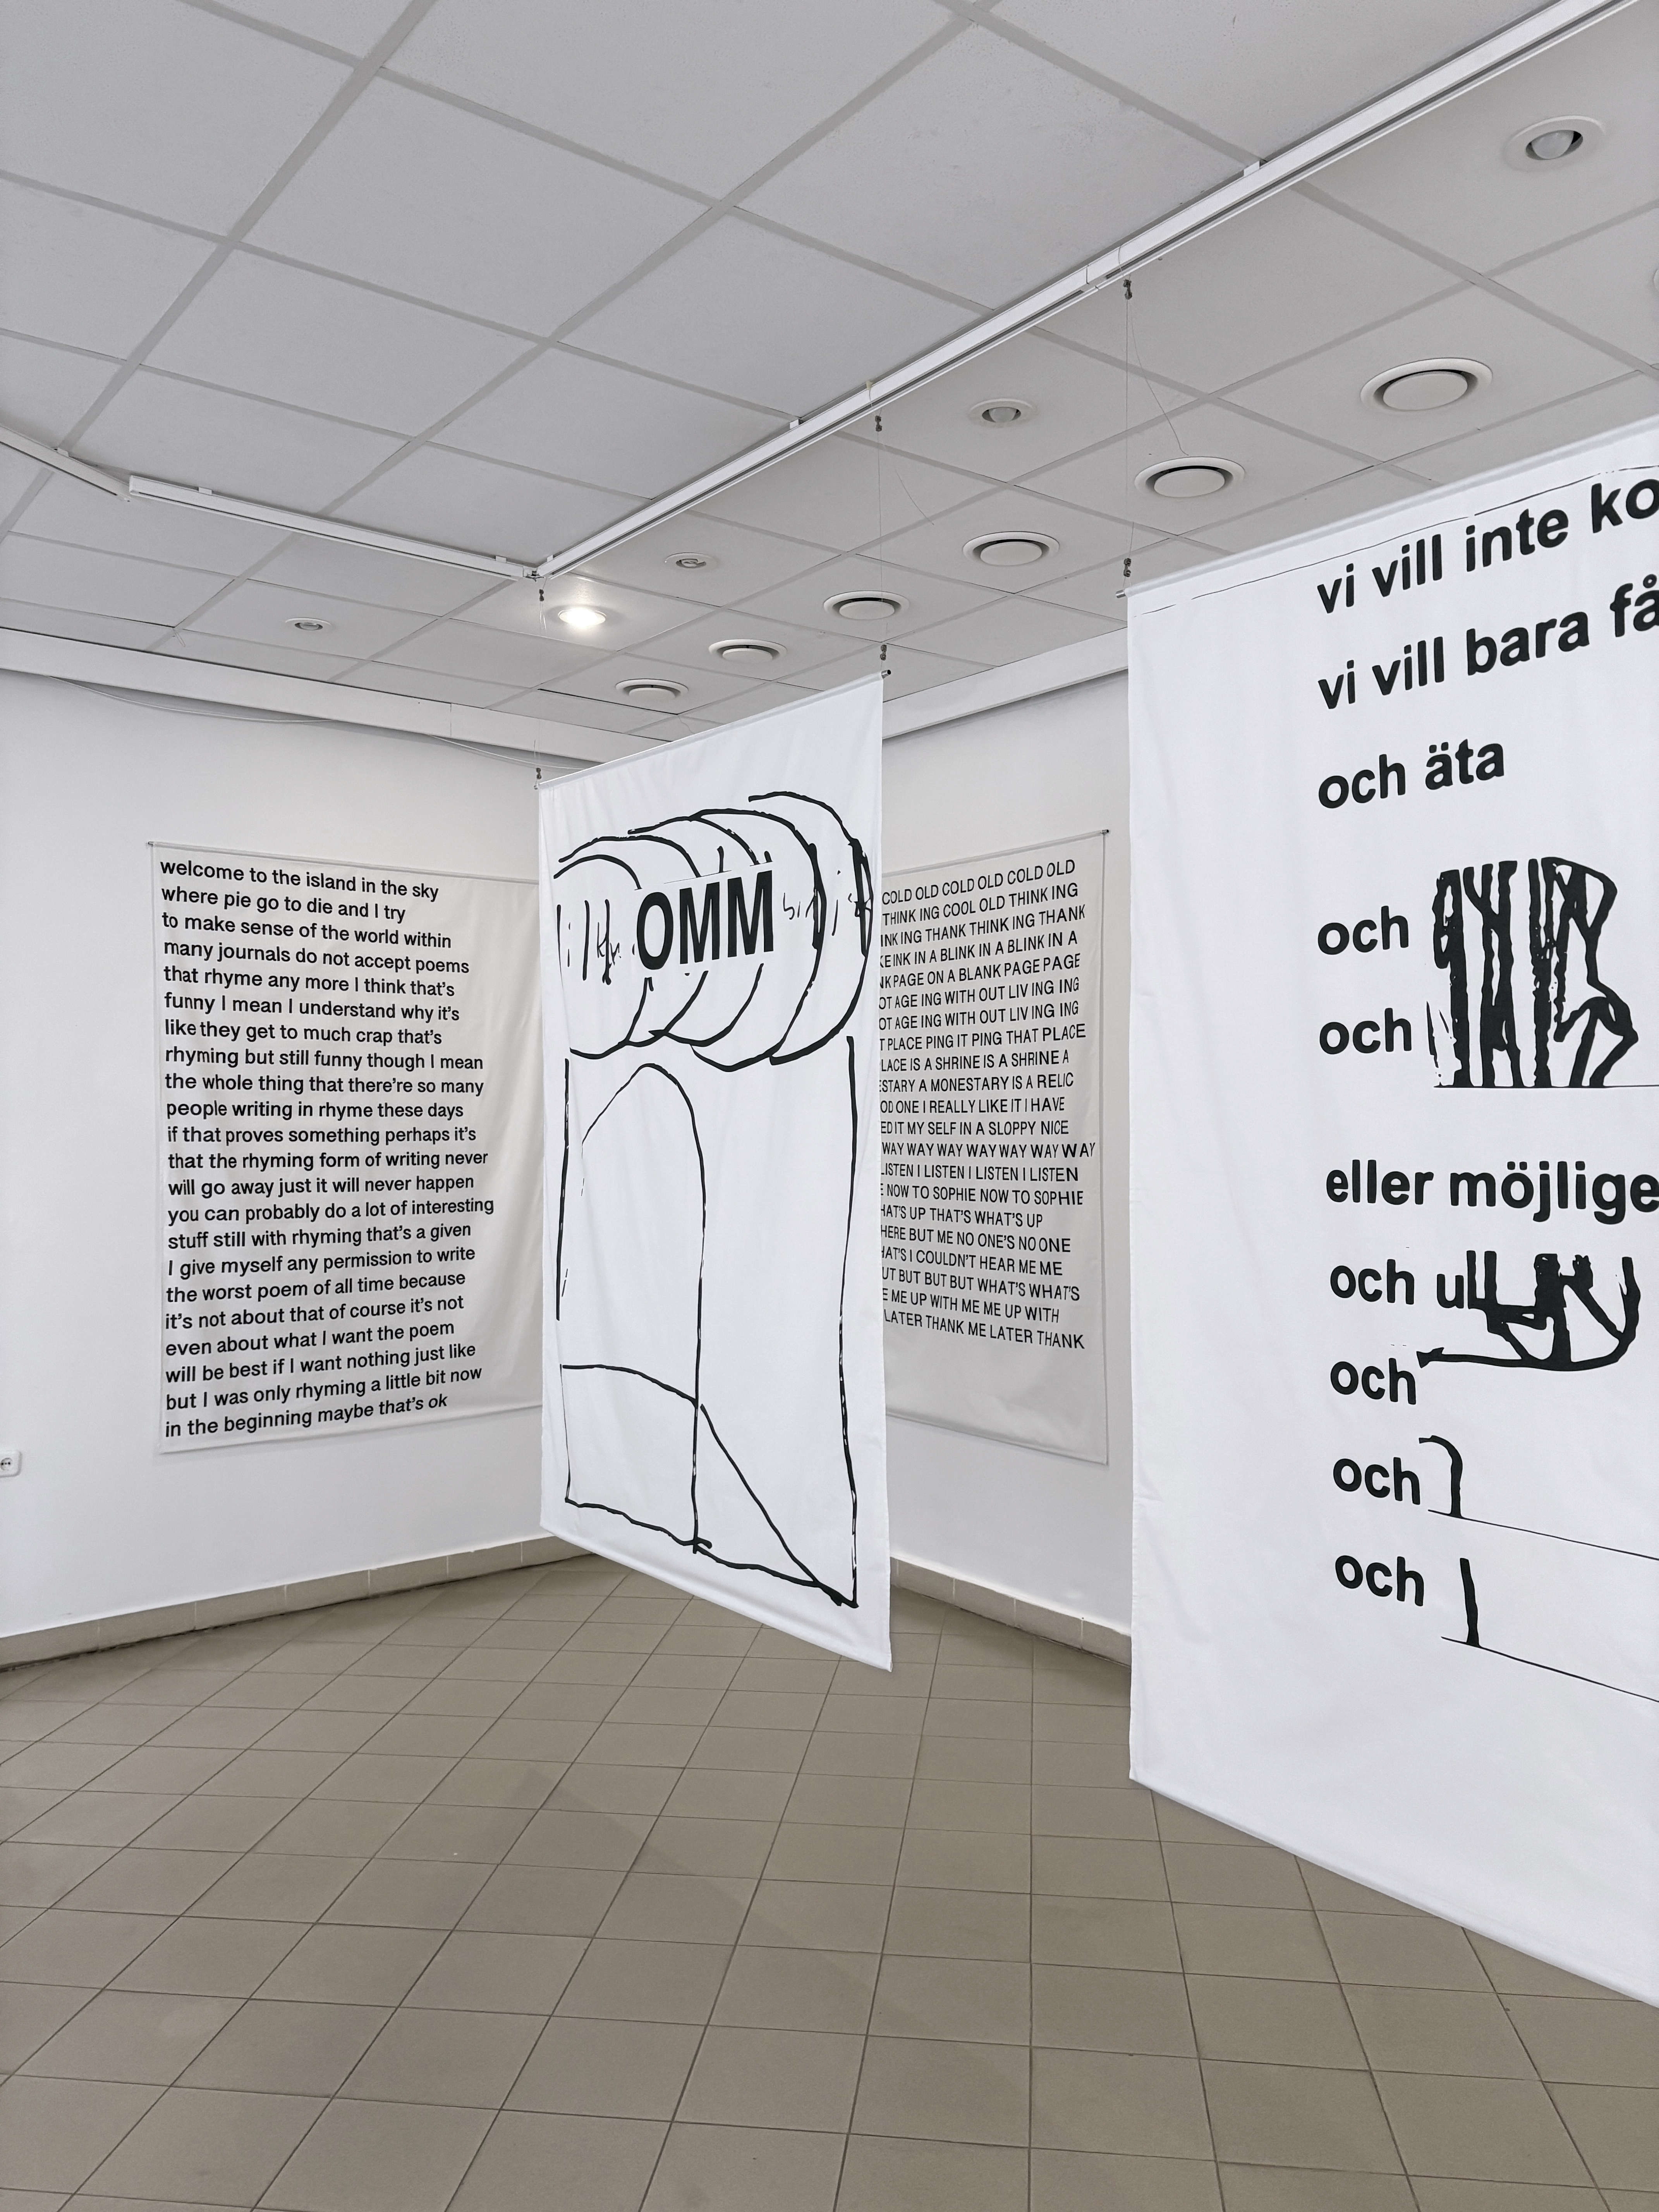 welcome to the island in the sky
where pie go to die and I try
to make sense of the world within
many journals do not accept poems
that rhyme any more I think that's
funny I mean I understand why it's
like they get to much crap that's
rhyming but still funny though I mean
the whole thing that there're so many
people writing in rhyme these days
if that proves something perhaps it's
that the rhyming form of writing never
will go away just it will never happen
you can probably do a lot of interesting
stuff still with rhyming that's a given
I give myself any permission to write
the worst poem of all time because
it's not about that of course it's not
even about what I want the poem
will be best if I want nothing just like
but I was only rhyming a little bit now
in the beginning maybe that's ok
OMM
COLD OLD COLD OLD COLD OLD
THINK ING COOL OLD THINK ING
ING THANK THINK ING THANK
INK IN A BLINK IN A BLINK IN A
PAGE ON A BLANK PAGE PAGE
AGE ING WITH OUT LIV ING ING
AGE ING WITH OUT LIV ING ING
PLACE PING IT PING THAT PLACE
IS A SHRINE IS A SHRINE A
A MONESTARY IS A RELIC
ONE I REALLY LIKE IT I HAVE
IT MY SELF IN A SLOPPY NICE
WAY WAY WAY WAY WAY WAY WAY
LISTEN I LISTEN I LISTEN I LISTEN
NOW TO SOPHIE NOW TO SOPHIE
UP THAT'S WHAT'S UP
BUT ME NO ONE'S NO ONE
I COULDN'T HEAR ME ME
BUT BUT BUT WHAT'S WHAT'S
ME UP WITH ME ME UP WITH
LATER THANK ME LATER THANK
vi vill inte ko
vi vill bara få
och äta
och
och
eller möjlige
och ull
och
och
och